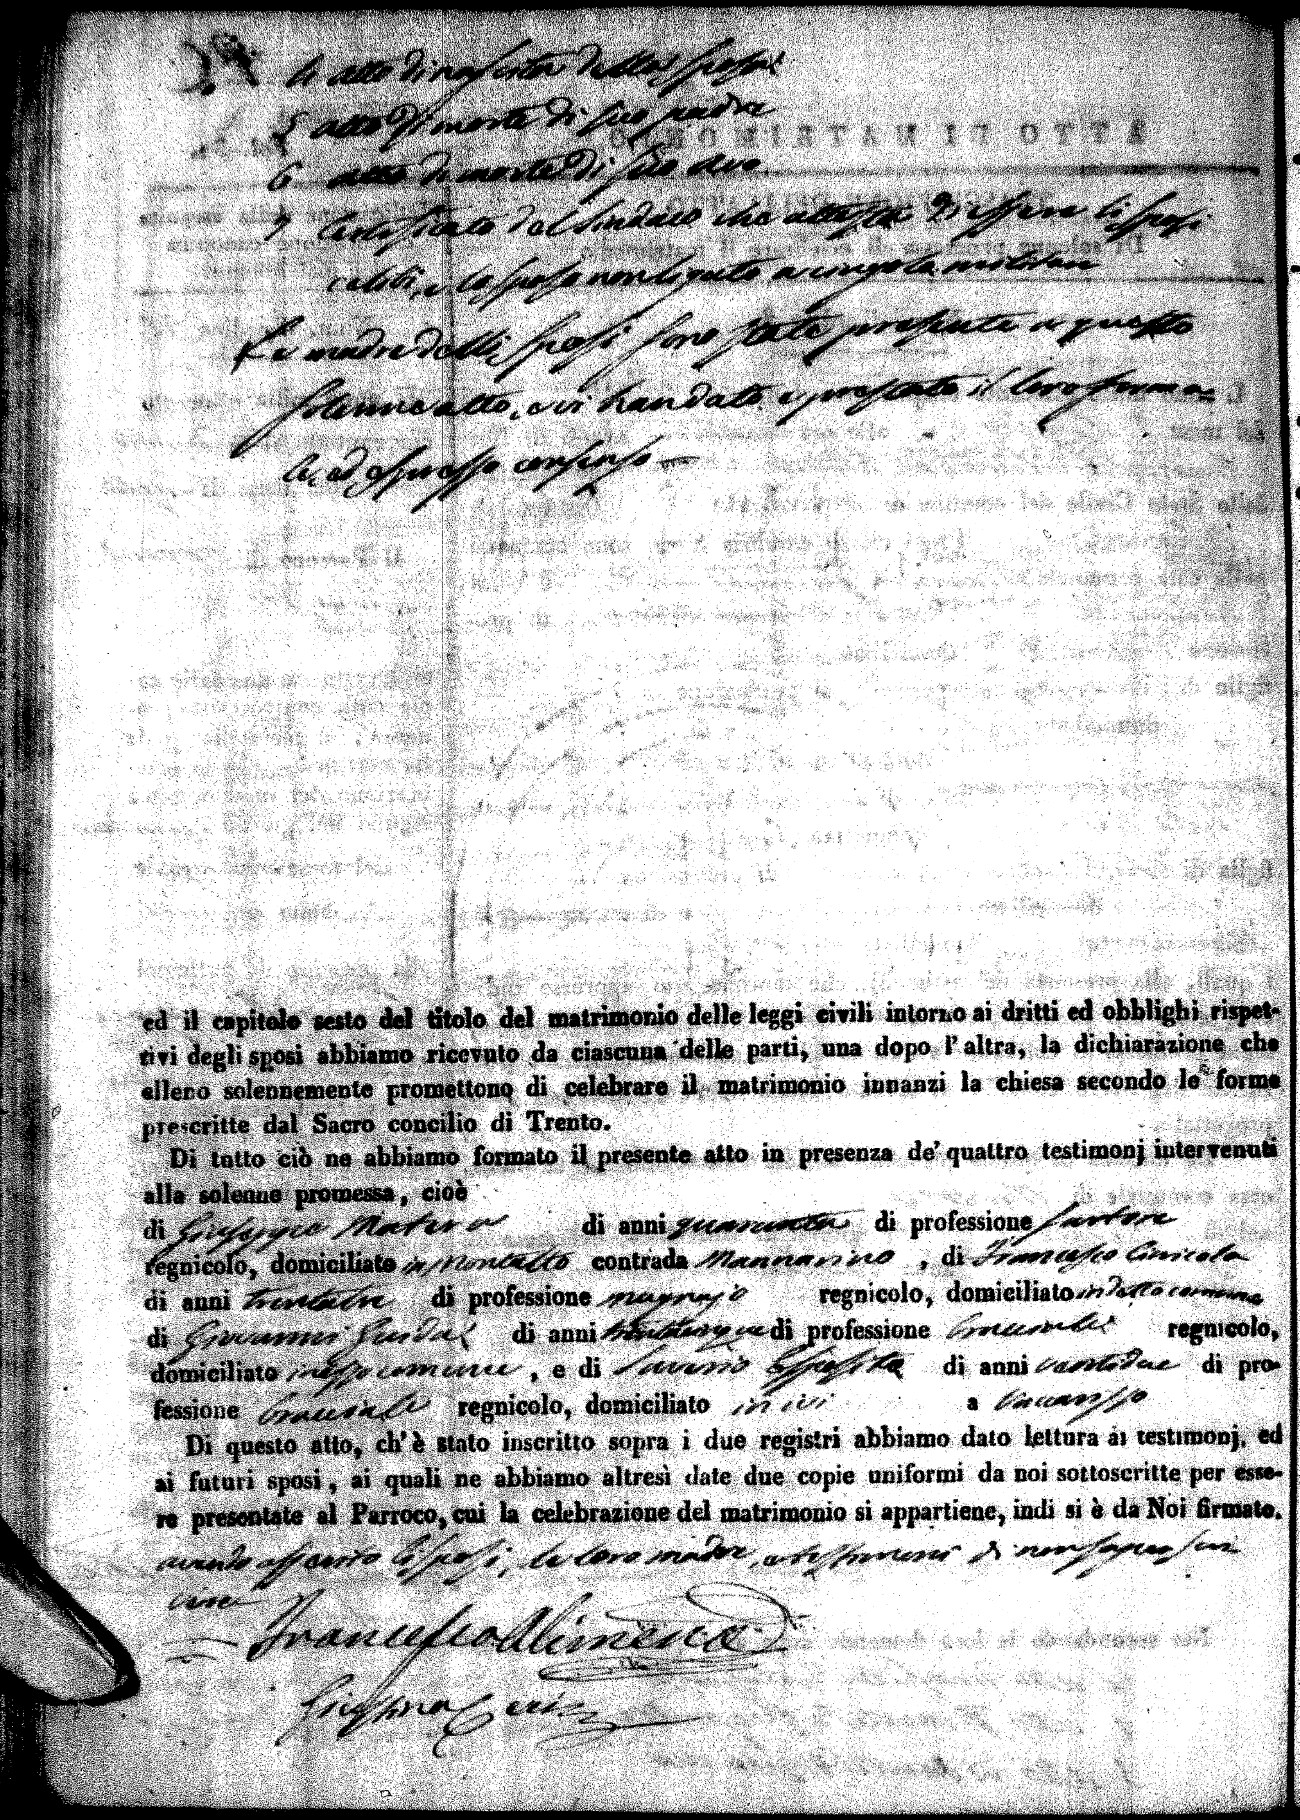 4 atto di nascita della sposa
5 atto di morte di suo padre
6 atto di morte di suo avo
7 Certificato del Sindaco che attesta di essere li sposi
celibi, e lo sposo non legato a cingolo militare
Le madri delli sposi sono state presente a questo
solenne atto, e vi han dato e prestato il loro forma=
le, ed espresso consenso —
ed il capitolo sesto del titolo del matrimonio delle leggi civili intorno ai dritti ed obblighi rispet-
tivi degli sposi abbiamo ricevuto da ciascuna delle parti, una dopo l'altra, la dichiarazione che
elleno solennemente promettono di celebrare il matrimonio innanzi la chiesa secondo le forme
prescritte dal Sacro concilio di Trento.
Di tutto ciò ne abbiamo formato il presente atto in presenza de' quattro testimonj intervenuti
alla solenne promessa, cioè
di Giuseppe Matera di anni quaranta di professione sartore
regnicolo, domiciliato in Montalto contrada Mannarino, di Francesco
di anni trentatre di professione regnicolo, domiciliato in detto comune
di Giovanni Guida di anni di professione bracciale regnicolo,
domiciliato in esso comune, e di Saverio Esposito di anni ventidue di pro-
fessione bracciale regnicolo, domiciliato in ivi a Vaccarizzo
Di questo atto, ch'è stato inscritto sopra i due registri abbiamo dato lettura ai testimonj, ed
ai futuri sposi, ai quali ne abbiamo altresì date due copie uniformi da noi sottoscritte per esse-
re presentate al Parroco, cui la celebrazione del matrimonio si appartiene, indi si è da Noi firmato.
avendo asserito li sposi, le loro madri, e testimoni di non saper scri
vere
Francesco Alimena